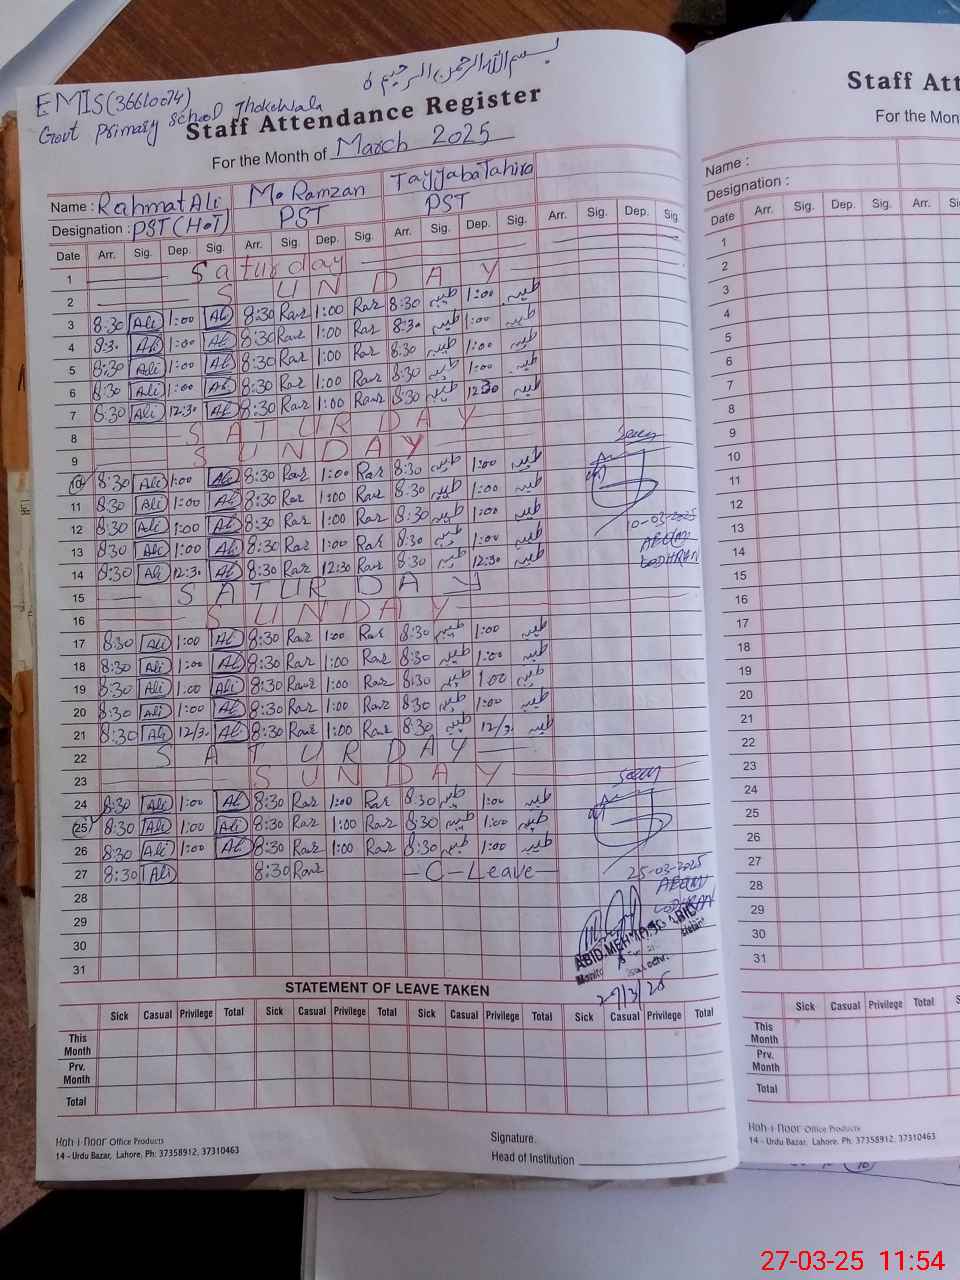 بسم اللہ الرحمن الرحیم
EMIS(36610074)
Govt Primary School Thokewala
Staff Attendance Register
For the Month of March 2025
Name : Rahmat Ali M. Ramzan Tayyaba Tahira
Designation : PST (H.T) PST PST
Date Arr. Sig. Dep. Sig. Arr. Sig. Dep. Sig. Arr. Sig. Dep. Sig. Arr. Sig. Dep. Sig.
1 Saturday
2 SUNDAY
3 8:30 Ali 1:00 Ali 8:30 Raz 1:00 Raz 8:30 طیبہ 1:00 طیبہ
4 8:30 Ali 1:00 Ali 8:30 Raz 1:00 Raz 8:30 طیبہ 1:00 طیبہ
5 8:30 Ali 1:00 Ali 8:30 Raz 1:00 Raz 8:30 طیبہ 1:00 طیبہ
6 8:30 Ali 1:00 Ali 8:30 Raz 1:00 Raz 8:30 طیبہ 1:00 طیبہ
7 8:30 Ali 12:30 Ali 8:30 Raz 1:00 Raz 8:30 طیبہ 12:30 طیبہ
8 SATURDAY
9 SUNDAY
10 8:30 Ali 1:00 Ali 8:30 Raz 1:00 Raz 8:30 طیبہ 1:00 طیبہ
11 8:30 Ali 1:00 Ali 8:30 Raz 1:00 Raz 8:30 طیبہ 1:00 طیبہ
12 8:30 Ali 1:00 Ali 8:30 Raz 1:00 Raz 8:30 طیبہ 1:00 طیبہ
10-03-2025
13 8:30 Ali 1:00 Ali 8:30 Raz 1:00 Raz 8:30 طیبہ 1:00 طیبہ
14 8:30 Ali 12:30 Ali 8:30 Raz 12:30 Raz 8:30 طیبہ 12:30 طیبہ
LODHRAN
15 SATURDAY
16 SUNDAY
17 8:30 Ali 1:00 Ali 8:30 Raz 1:00 Raz 8:30 طیبہ 1:00 طیبہ
18 8:30 Ali 1:00 Ali 8:30 Raz 1:00 Raz 8:30 طیبہ 1:00 طیبہ
19 8:30 Ali 1:00 Ali 8:30 Raz 1:00 Raz 8:30 طیبہ 1:00 طیبہ
20 8:30 Ali 1:00 Ali 8:30 Raz 1:00 Raz 8:30 طیبہ 1:00 طیبہ
21 8:30 Ali 12/3. Ali 8:30 Raz 1:00 Raz 8:30 طیبہ 12/3. طیبہ
22 SATURDAY
23 SUNDAY
24 8:30 Ali 1:00 Ali 8:30 Raz 1:00 Raz 8:30 طیبہ 1:00 طیبہ
25 8:30 Ali 1:00 Ali 8:30 Raz 1:00 Raz 8:30 طیبہ 1:00 طیبہ
26 8:30 Ali 1:00 Ali 8:30 Raz 1:00 Raz 8:30 طیبہ 1:00 طیبہ
27 8:30 Ali 8:30 Raz C-Leave 25-03-2025
28
29
30
31
27/3/25
STATEMENT OF LEAVE TAKEN
Sick Casual Privilege Total Sick Casual Privilege Total Sick Casual Privilege Total Sick Casual Privilege Total
This Month
Prv. Month
Total
Koh-i-Noor Office Products
14 - Urdu Bazar, Lahore. Ph: 37358912, 37310463
Signature.
Head of Institution
Staff Att
For the Mon
Name :
Designation :
Date Arr. Sig. Dep. Sig. Arr.
1
2
3
4
5
6
7
8
9
10
11
12
13
14
15
16
17
18
19
20
21
22
23
24
25
26
27
28
29
30
31
Sick Casual Privilege Total Sick
This Month
Prv. Month
Total
Koh-i-Noor Office Products
14 - Urdu Bazar, Lahore. Ph: 37358912, 37310463
27-03-25 11:54